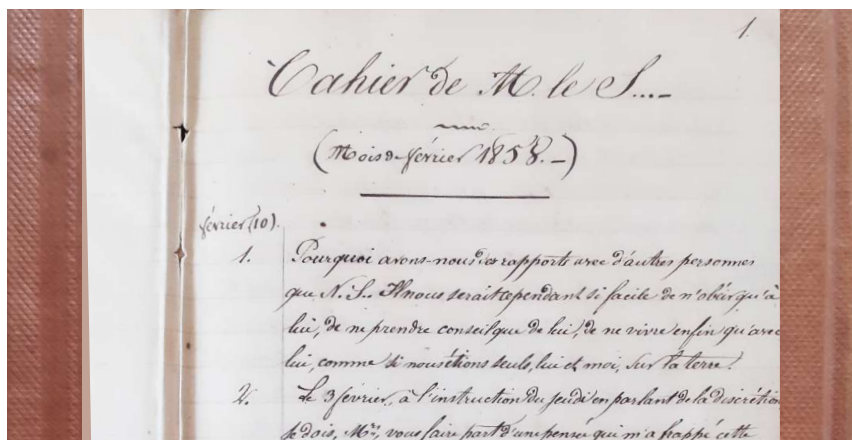 1.
Cahier de M. le S....
(Mois de février 1858.-)
février (10).
1. Pourquoi avons-nous des rapports avec d'autres personnes
que N. S.. Il nous serait cependant si facile de n'obéir qu'à
lui, de ne prendre conseil que de lui, de ne vivre enfin qu'avec
lui, comme si nous étions seuls, lui et moi, sur la terre!
2. Le 3 février, à l'instruction du jeudi en parlant de la discrétion
je dois, Mrs, vous faire part d'une pensée qui m'a frappé cette